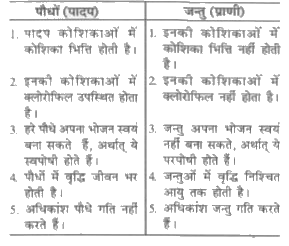 पौधों (पादप)
1. पादप कोशिकाओं में
कोशिका भित्ति होती है।
2. इनकी कोशिकाओं में
क्लोरोफिल उपस्थित होता
है।
3. हरे पौधे अपना भोजन स्वयं
बना सकते हैं, अर्थात् ये
स्वपोषी होते हैं।
4. पौधों में वृद्धि जीवन भर
होती है।
5. अधिकांश पौधे गति नहीं
करते हैं।
जन्तु (प्राणी)
1. इनकी कोशिकाओं में
कोशिका भित्ति नहीं होती
है।
2. इनकी कोशिकाओं में
क्लोरोफिल नहीं होता है।
3. जन्तु अपना भोजन स्वयं
नहीं बना सकते, अर्थात् ये
परपोषी होते हैं।
4. जन्तुओं में वृद्धि निश्चित
आयु तक होती है।
5. अधिकांश जन्तु गति करते
हैं।